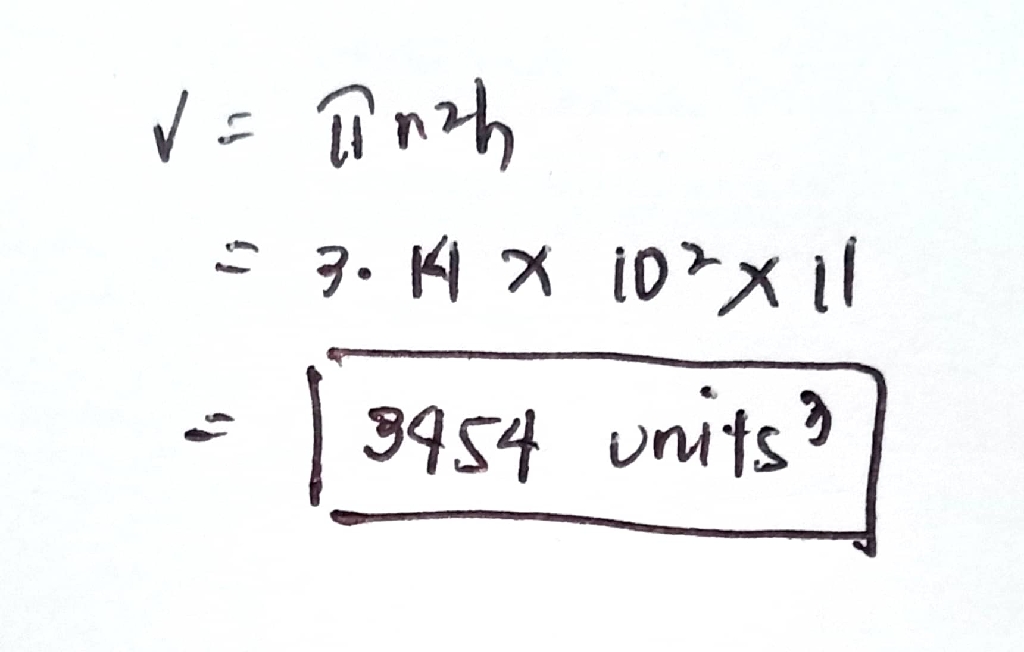 V = πr²h
= 3.14 × 10² × 11
= 3454 units³